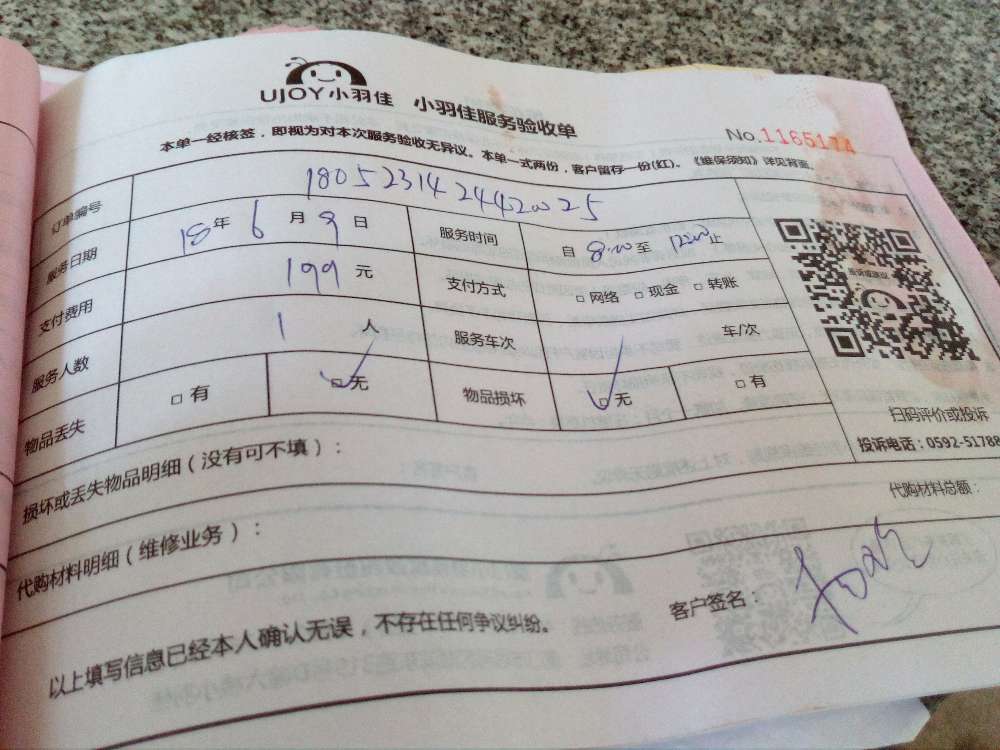 UJOY小羽佳 小羽佳服务验收单
No.1165174
本单一经核签，即视为对本次服务验收无异议。本单一式两份，客户留存一份(红)。《维保须知》详见背面。
订单编号 18052314244200025
服务日期 18年6月9日 服务时间 自8:00至12:00止
支付费用 199元 支付方式 □网络 □现金 □转账
服务人数 1人 服务车次 车/次
物品丢失 □有 □无 物品损坏 □无 □有
扫码评价或投诉
投诉电话：0592-51788
损坏或丢失物品明细（没有可不填）：
代购材料明细（维修业务）：
代购材料总额：
以上填写信息已经本人确认无误，不存在任何争议纠纷。
客户签名：